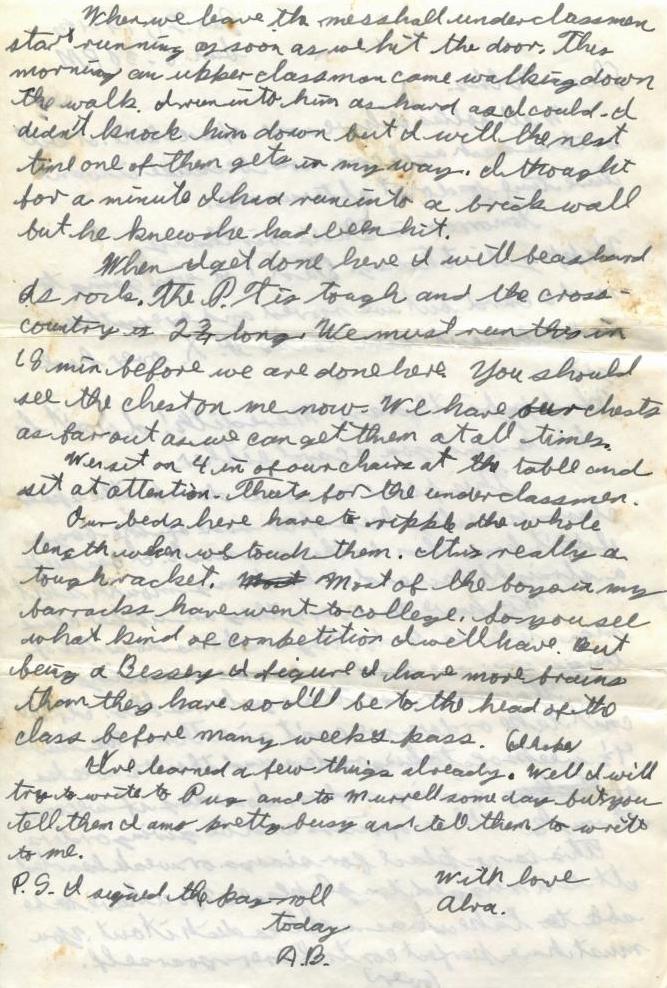 When we leave the messhall underclassmen
start running as soon as we hit the door. This
morning an upper classman came walking down
the walk. I run into him as hard as I could. I
didn't knock him down but I will the next
time one of them gets in my way. I thought
for a minute I had run into a brick wall
but he knew he had been hit.
When I get done here I will be as hard
as rock. The P.T is tough and the cross-
country is 2 3/4 long. We must run this in
18 min before we are done here. You should
see the chest on me now. We have our chests
as far out as we can get them at all times.
We sit on 4 in of our chairs at the table and
sit at attention. Thats for the underclassmen.
Our beds here have to ripple the whole
length when we touch them. It is really a
tough racket. Most of the boys in my
barracks have went to college. So you see
what kind of competition I will have. But
being a Bessey I figure I have more brains
than they have so I'll be to the head of the
class before many weeks pass. (I hope)
I've learned a few things already. Well I will
try to write to Pug and to Murrell some day but you
tell them I am pretty busy and tell them to write
to me.
With love
Alva.
P.S. I signed the pay-roll
today
A.B.